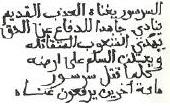 السرسور بغناه العذب القديم
نادى جاهدا للدفاع عن الحق
يهدي الشعوب المتفائلة
ويعلن السلم على ارضه
كلما قتل سرسور
مائة آخرين يرفعون غناه